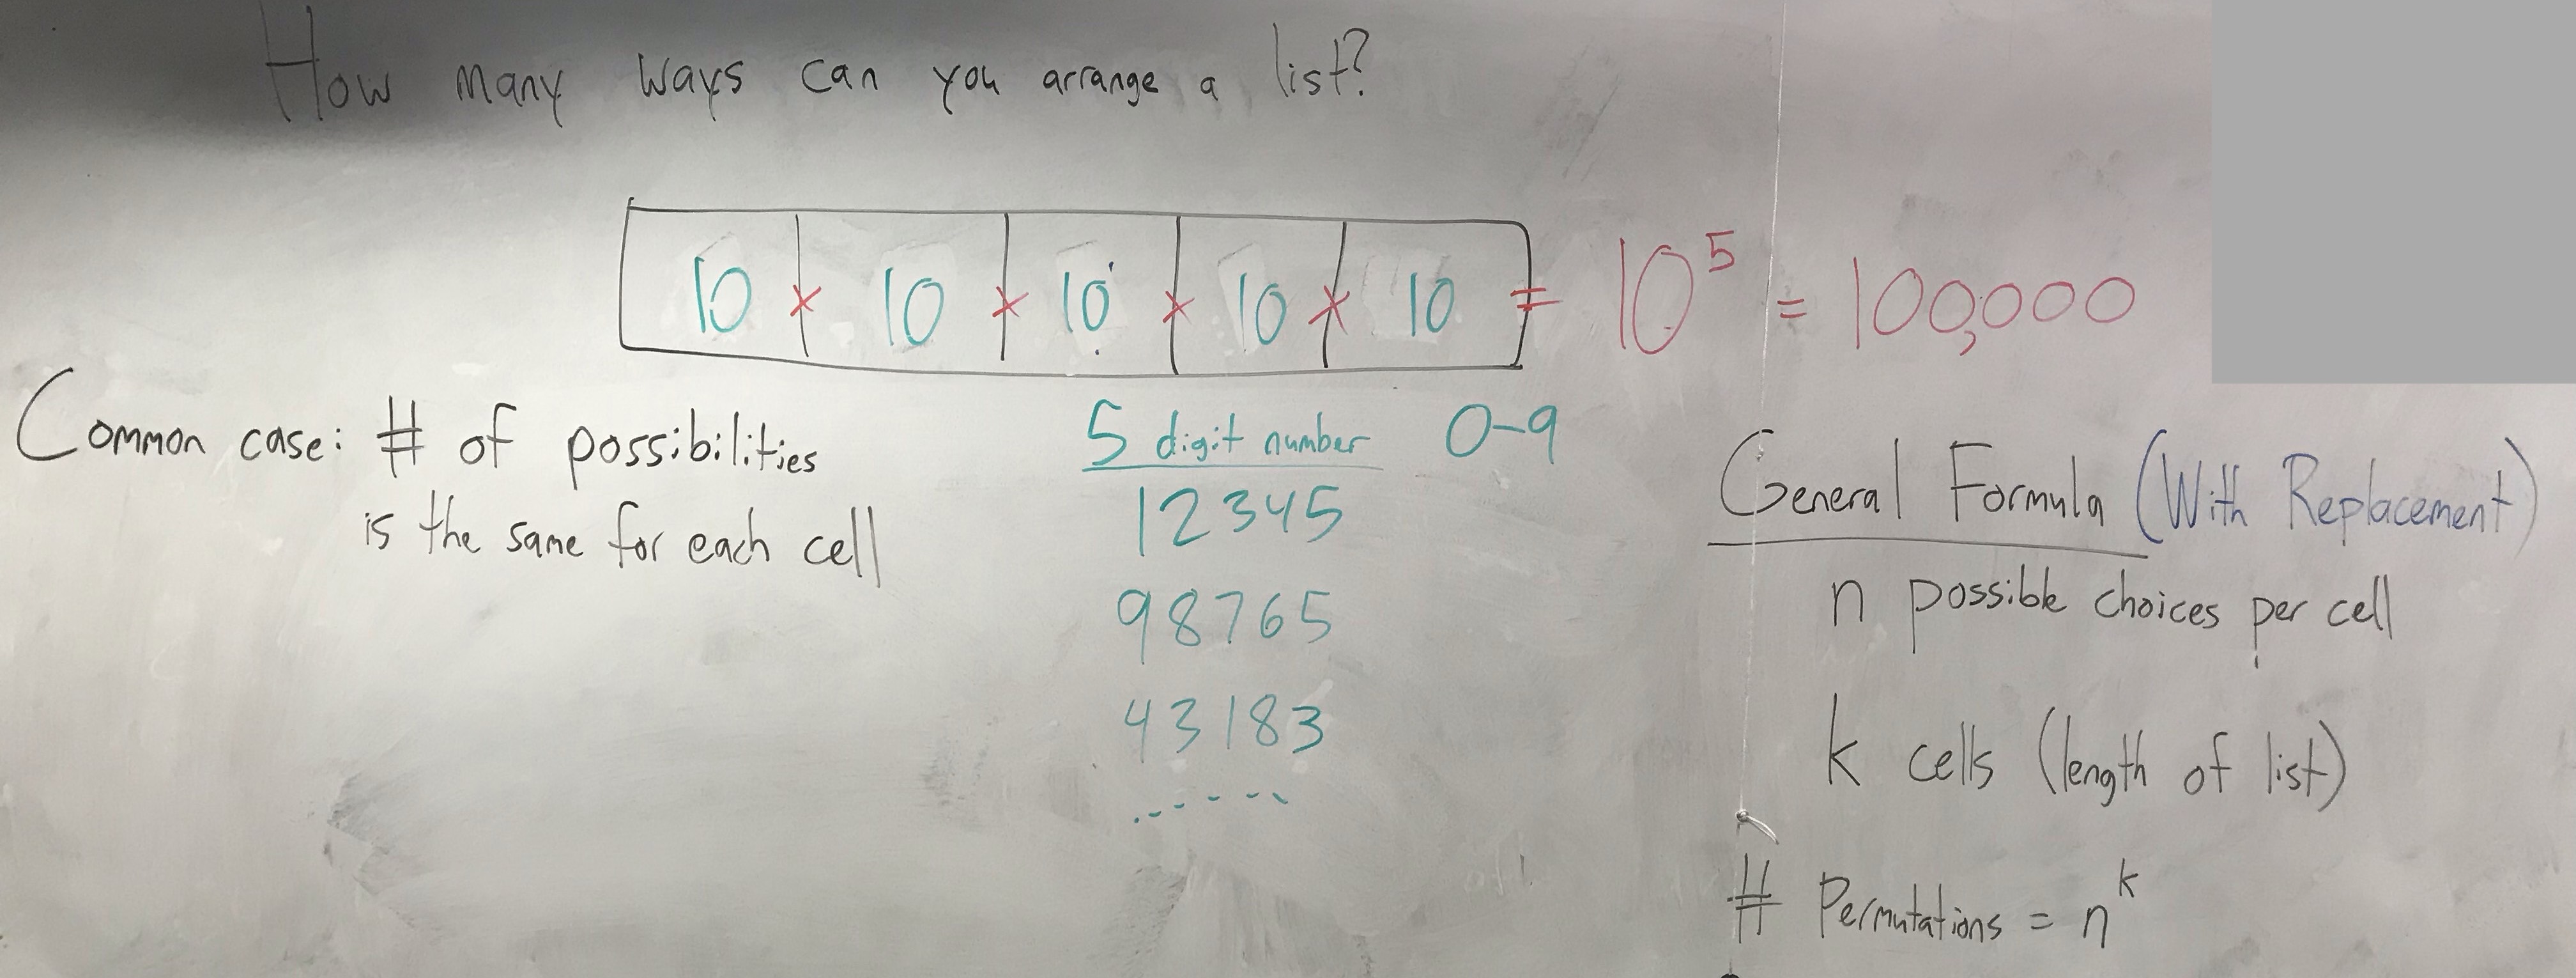 How many ways can you arrange a list?
10 × 10 × 10 × 10 × 10 = 10⁵ = 100,000
Common case: # of possibilities
is the same for each cell
5 digit number 0-9
12345
98765
43183
......
General Formula (With Replacement)
n possible choices per cell
k cells (length of list)
# Permutations = nᵏ